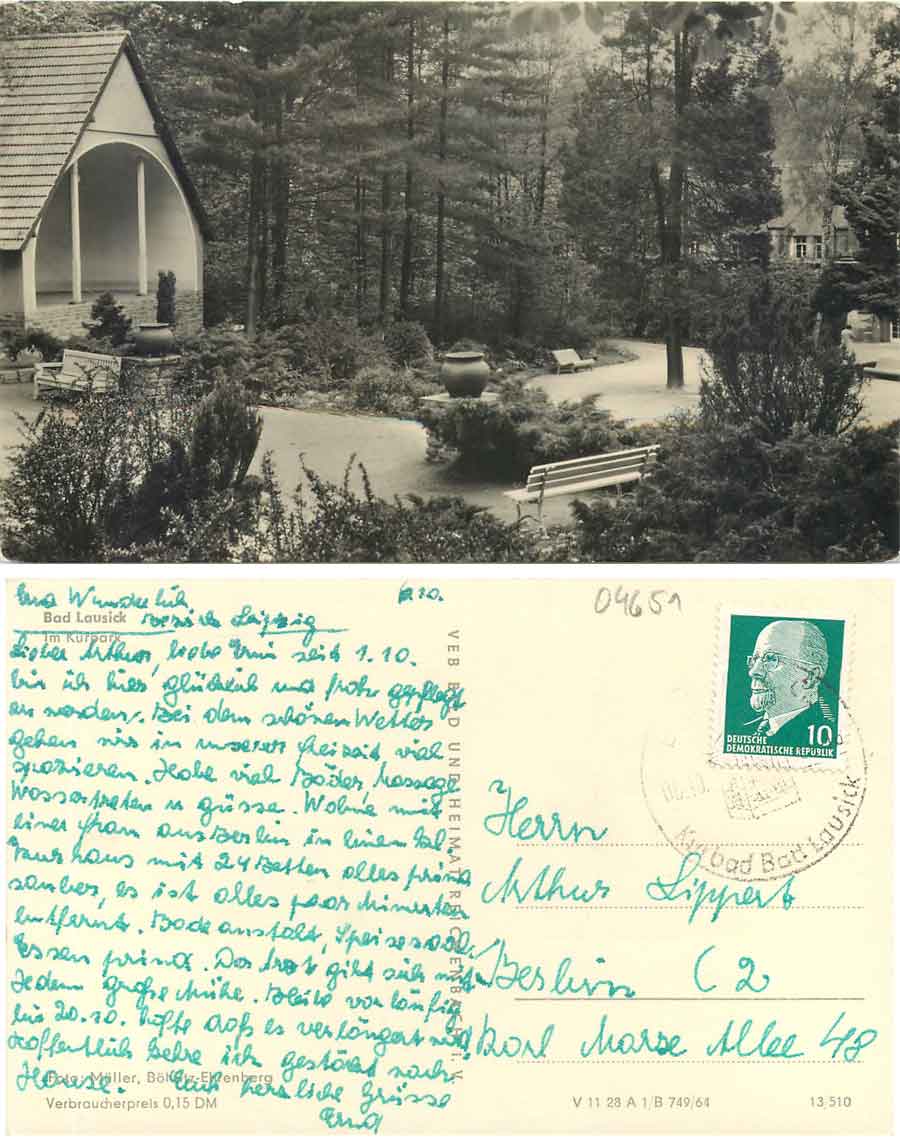 Erna Wunderlich
6.10.
04651
Bad Lausick
Bezirk Leipzig
Im Kurpark
Lieber Arthur, liebe Erna seit 1.10.
bin ich hier glücklich und froh gepflegt
zu werden. Bei dem schönen Wetter
gehen wir in unserer Freizeit viel
spazieren. Habe viel Bäder, Massage
Wassertreten u güsse. Wohne mit
einer Frau aus Berlin in einem
haus mit 24 Betten alles prima
sauber, es ist alles paar Minuten
entfernt. Badeanstalt, Speisesaal.
Essen prima. Der Arzt gibt sich mit
Jedem große Mühe. Bleibe vorläufig
bis 20.10. hoffe daß es verlängert wird
Hoffentlich kehre ich gestärkt nach
Hause. Euch herzliche Grüsse
Erna
Foto: Müller, Böhlitz-Ehrenberg
Verbraucherpreis 0,15 DM
VEB BILD UND HEIMAT REICHENBACH I. V.
DEUTSCHE
DEMOKRATISCHE REPUBLIK
10
Kurbad Bad Lausick
Herrn
Arthur Lippert
Berlin C2
Karl Marx Allee 48
V 11 28 A 1/B 749/64
13 510